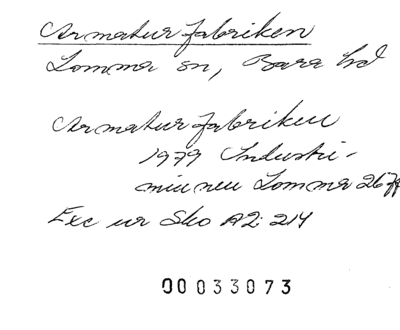 Armaturfabriken
Lomma sn, Bara hd
Armaturfabriken
1979 Industri-
minnen Lomma 26 79
Exc ur Sko A2: 214
00033073